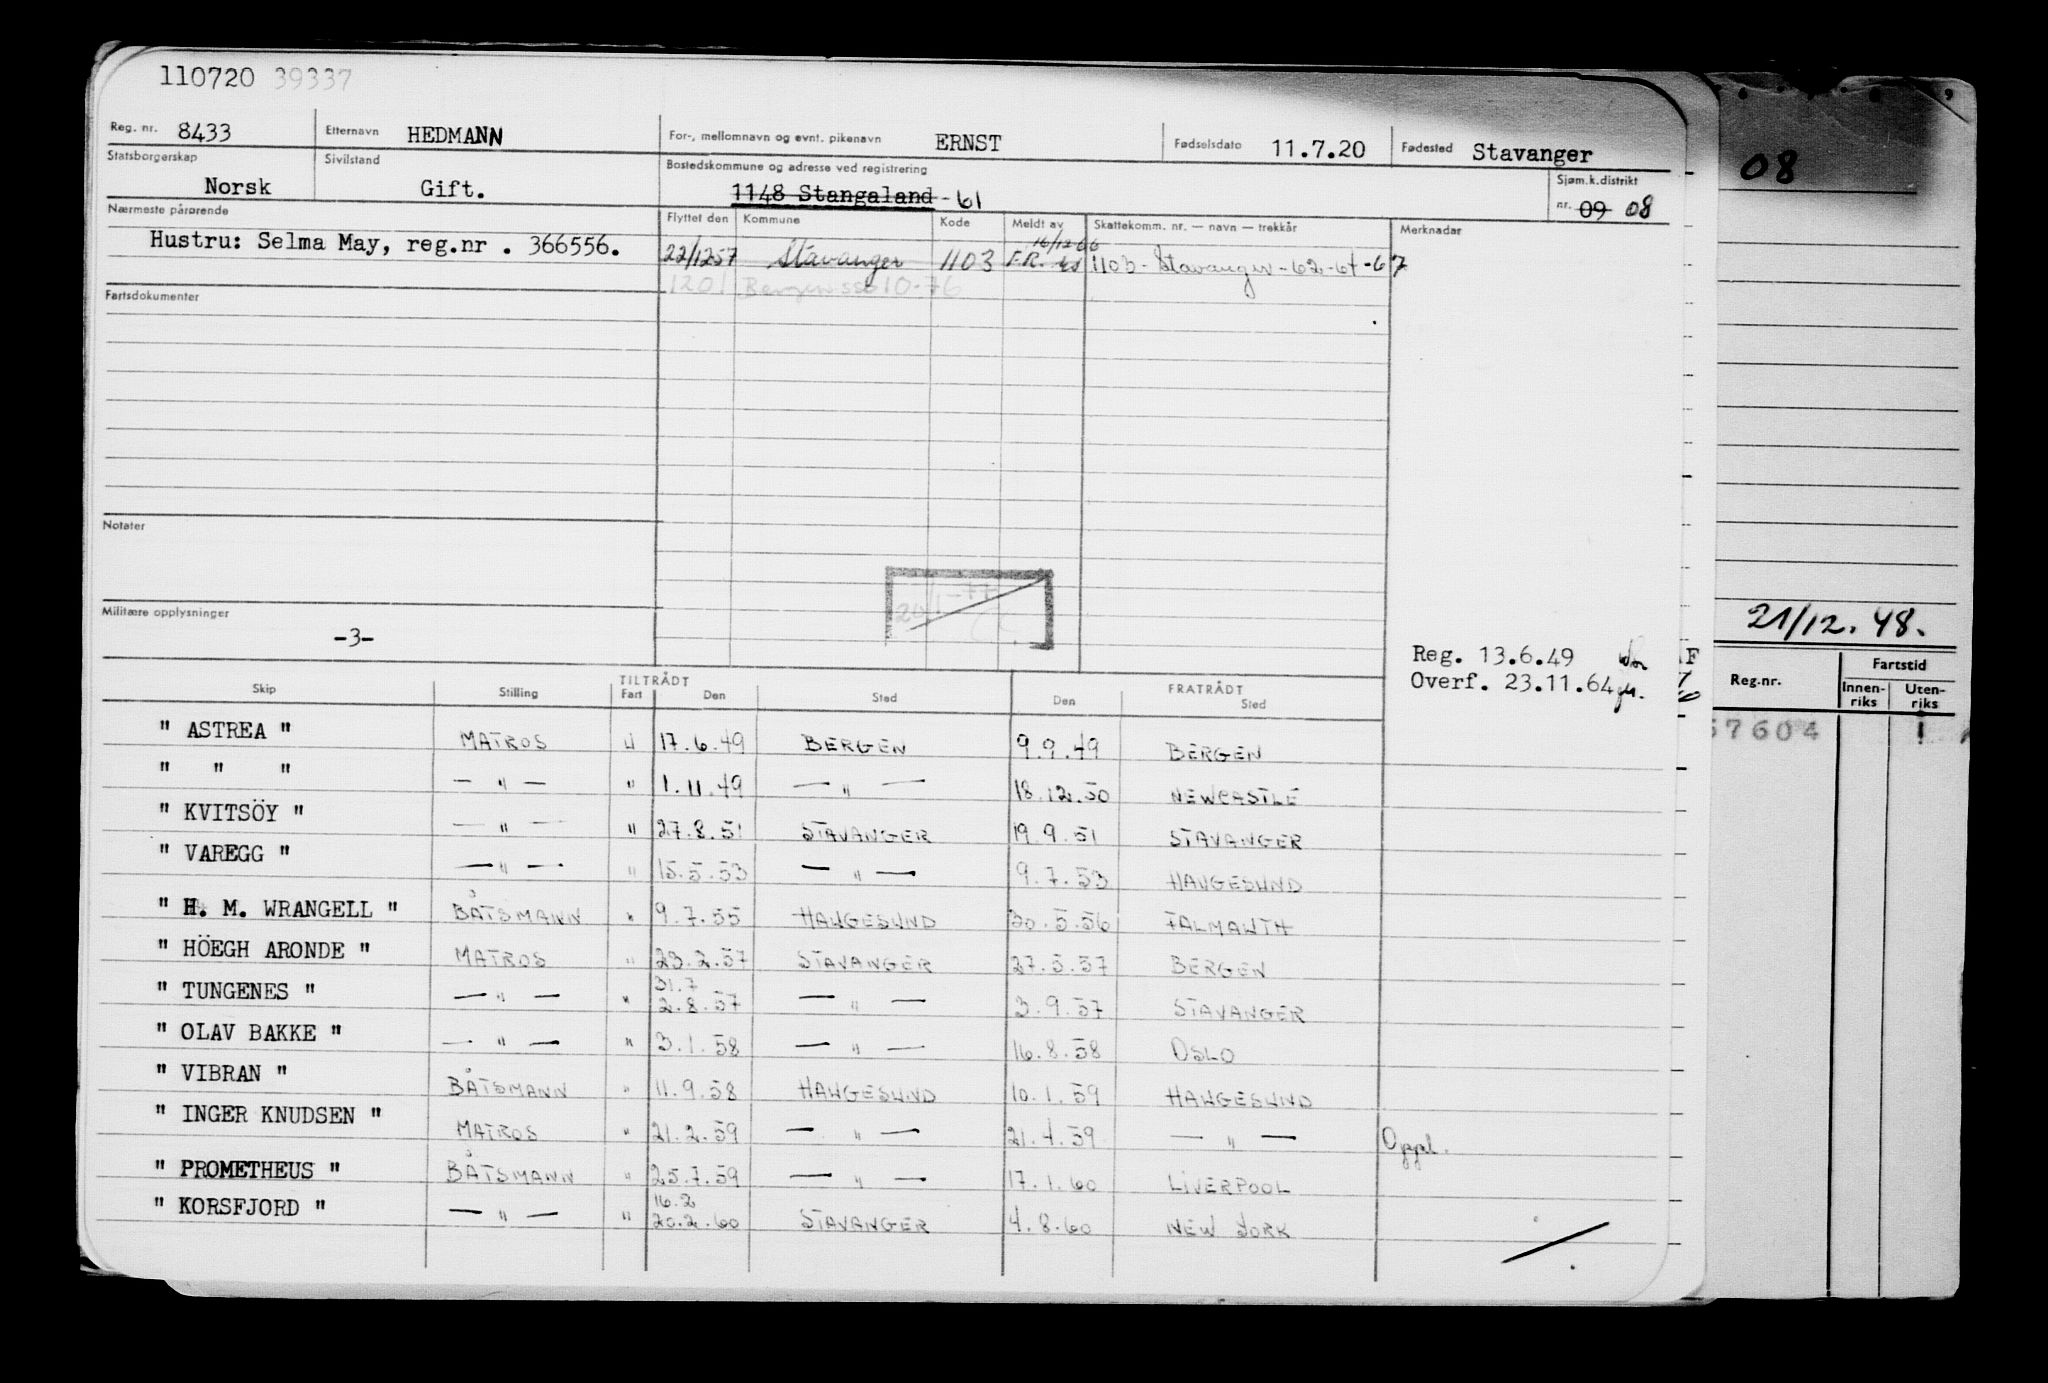 110720 39337
Reg. nr. 8433 Etternavn HEDMANN For-, mellomnavn og evnt. pikenavn ERNST Fødselsdato 11.7.20 Fødested Stavanger
Statsborgerskap Norsk Sivilstand Gift. Bostedskommune og adresse ved registrering 1148 Stangaland - 61 Sjøm.k.distrikt nr. 09 08
Nærmeste pårørende Flyttet den Kommune Kode Meldt av Skattekomm. nr. — navn — trekkår Merknader
Hustru: Selma May, reg.nr . 366556.
16/12-66
22/12-57 Stavanger 1103 F.R. 1103 - Stavanger - 62-64-67
1201 Bergen 10-76
Fartsdokumenter
Notater
20/1-77
Militære opplysninger
-3-
Reg. 13.6.49
Overf. 23.11.64
Skip Stilling TILTRÅDT Fart Den Sted FRATRÅDT Den Sted
" ASTREA " MATROS U 17.6.49 BERGEN 9.9.49 BERGEN
" " " — " — " 1.11.49 — " — 18.12.50 NEWCASTLE
" KVITSÖY " — " — " 27.8.51 STAVANGER 19.9.51 STAVANGER
" VAREGG " — " — " 15.5.53 — " — 9.7.53 HAUGESUND
" H. M. WRANGELL " BÅTSMANN " 9.7.55 HAUGESUND 30.5.56 FALMAUTH
" HÖEGH ARONDE " MATROS " 23.2.57 STAVANGER 27.5.57 BERGEN
" TUNGENES " — " — " 31.7 2.8.57 — " — 3.9.57 STAVANGER
" OLAV BAKKE " — " — " 3.1.58 — " — 16.8.58 OSLO
" VIBRAN " BÅTSMANN " 11.9.58 HAUGESUND 10.1.59 HAUGESUND
" INGER KNUDSEN " MATROS " 21.2.59 — " — 21.4.59 — " — Oppl.
" PROMETHEUS " BÅTSMANN " 25.7.59 — " — 17.1.60 LIVERPOOL
" KORSFJORD " — " — " 16.2 20.2.60 STAVANGER 4.8.60 NEW YORK
08
21/12.48.
F
Reg.nr. Fartstid
Innen-riks Uten-riks
57604 1